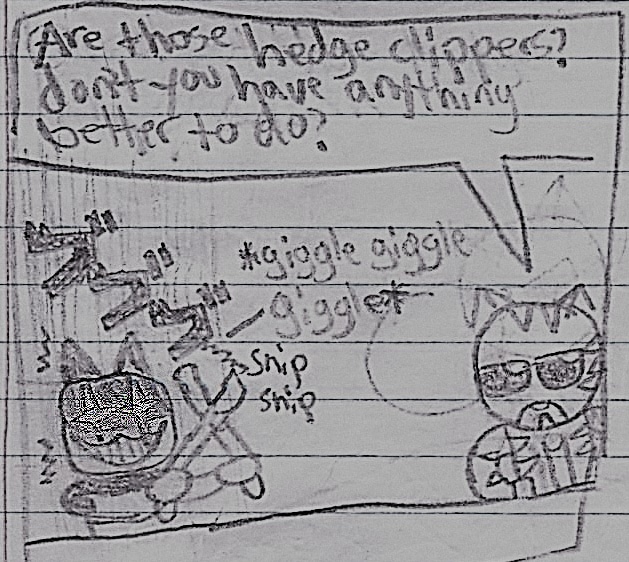 Are those hedge clippers?
don't you have anything
better to do?
*giggle giggle
giggle*
snip
snip